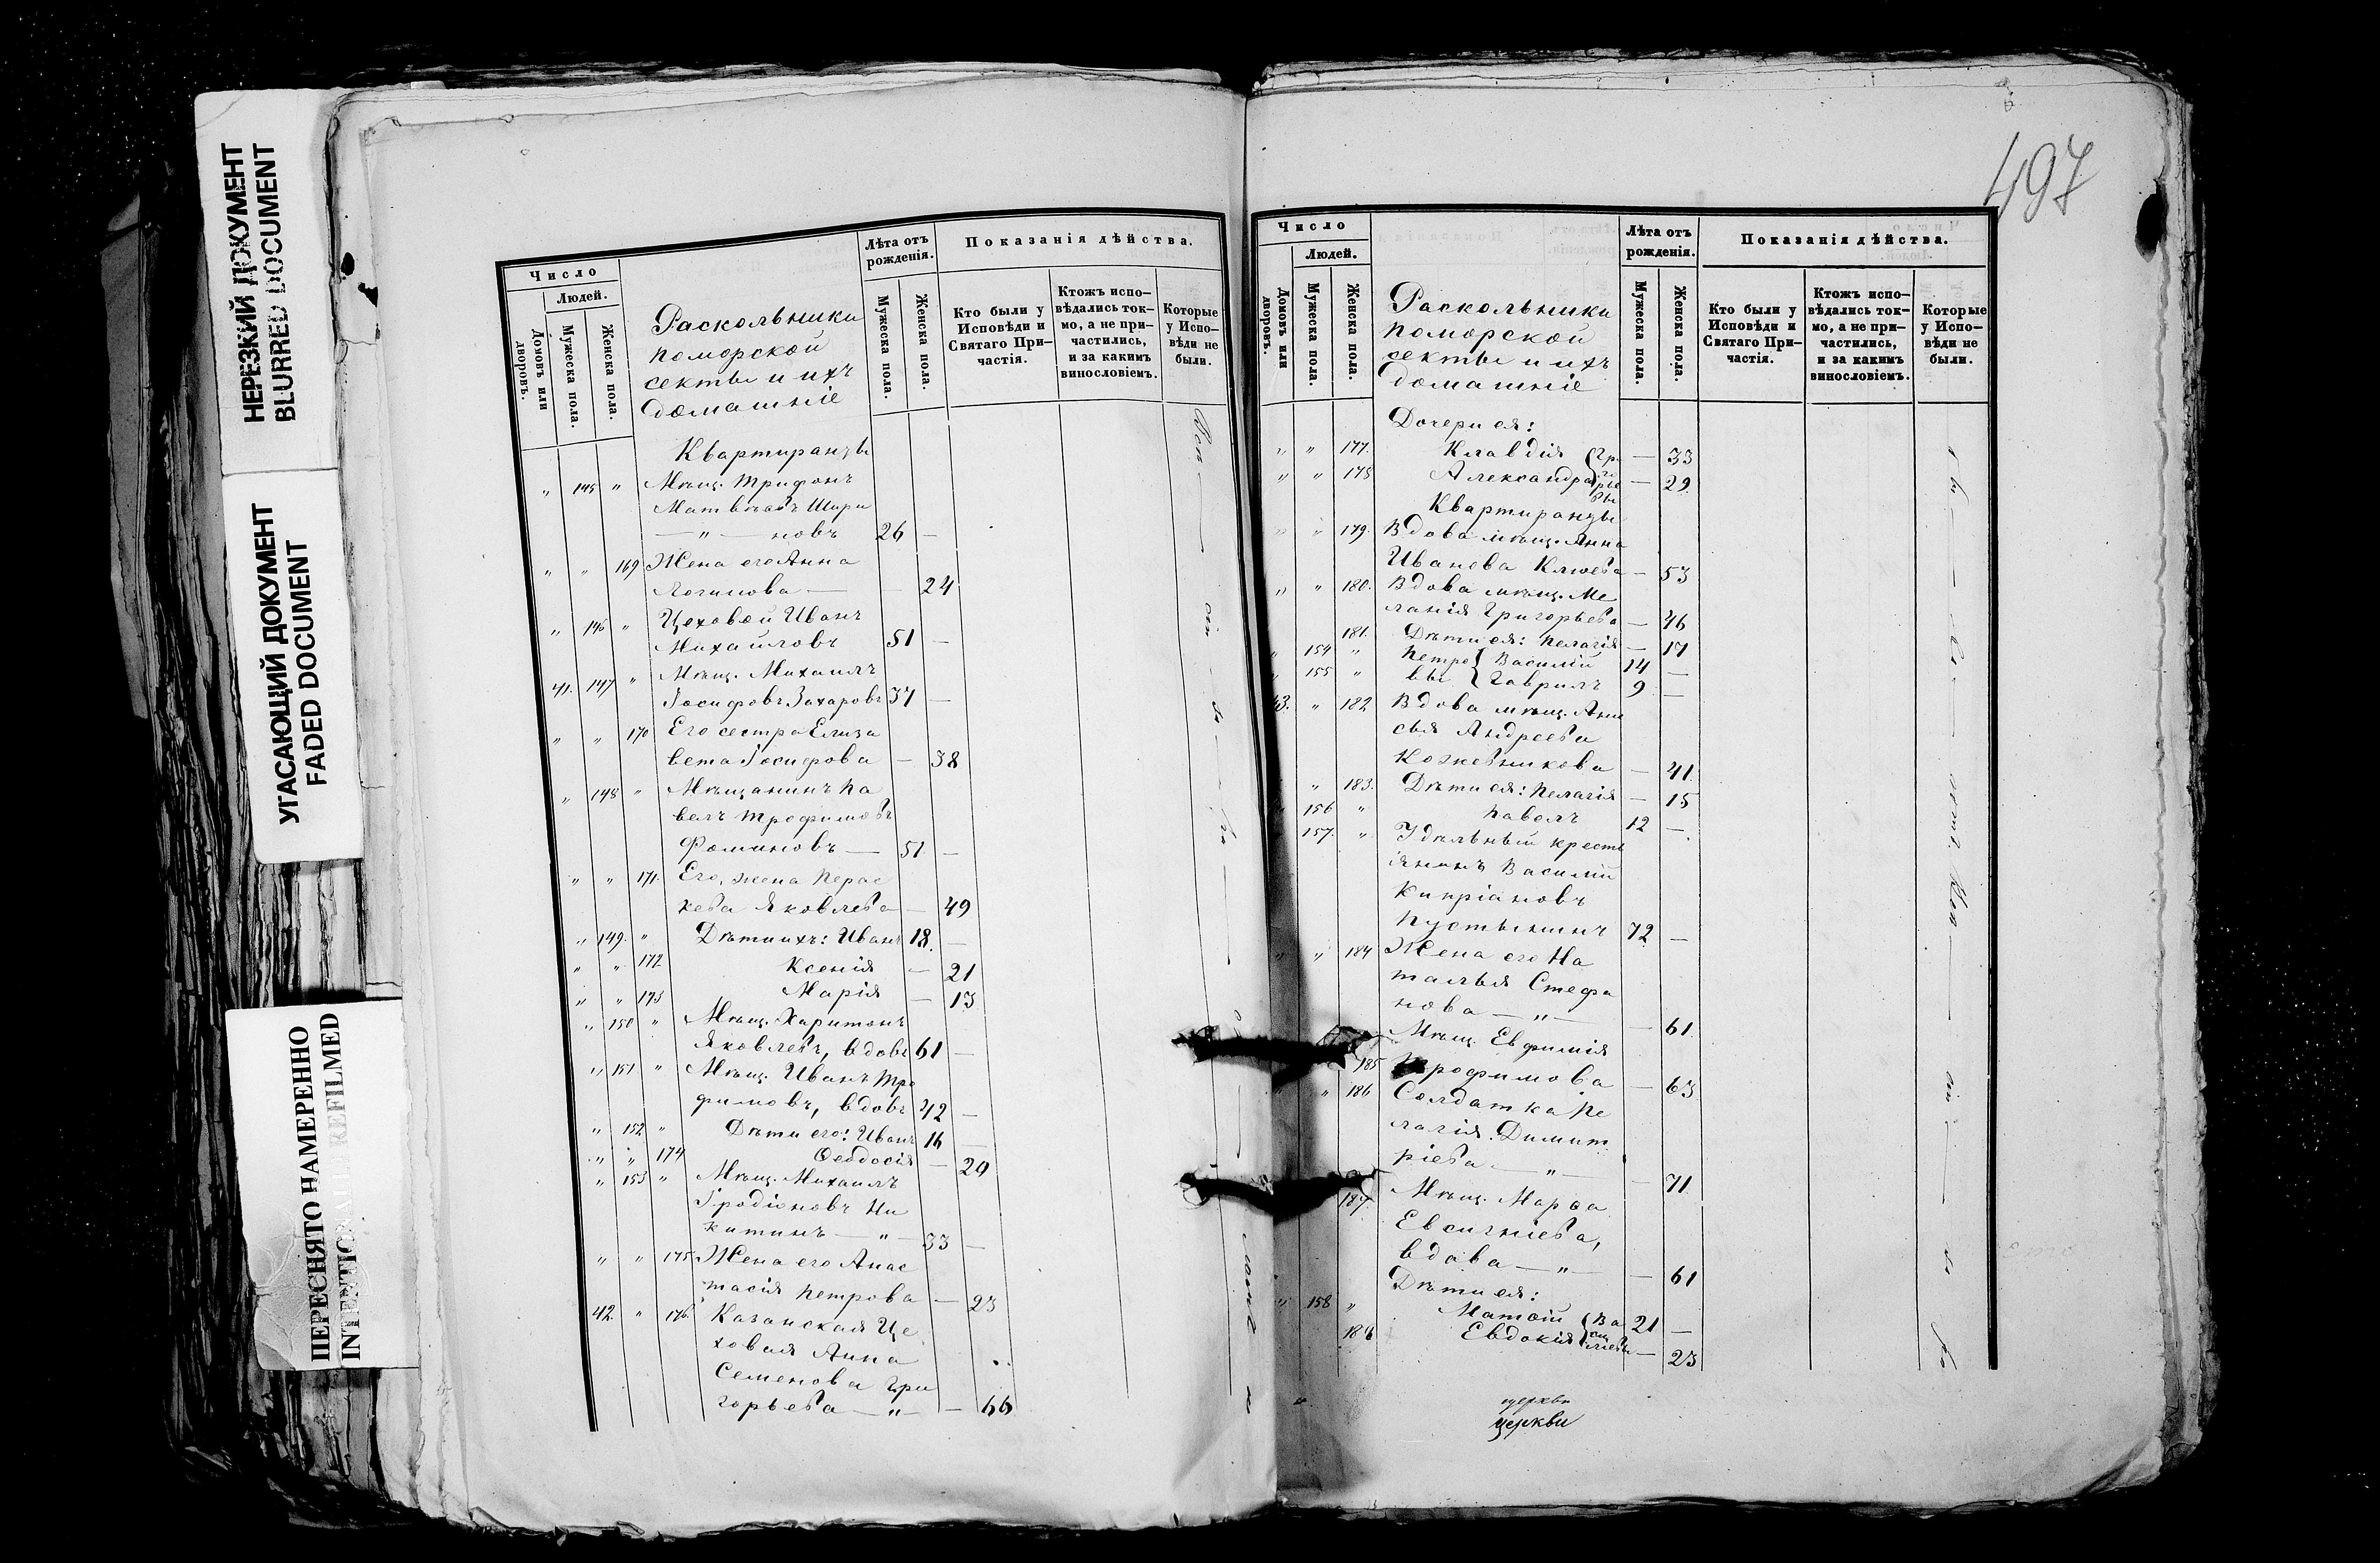 НЕРЕЗКИЙ ДОКУМЕНТ
BLURRED DOCUMENT
УГАСАЮЩИЙ ДОКУМЕНТ
FADED DOCUMENT
ПЕРЕСНЯТО НАМЕРЕННО
INTENTIONALLY REFILMED
Число
Людей.
Домовъ или дворовъ.
Мужеска пола.
Женска пола.
Раскольники
поморской
секты и ихъ
домашніе
Лѣта отъ рожденія.
Мужеска пола.
Женска пола.
Показанія дѣйства.
Кто были у Исповѣди и Святаго При-
частія.
Ктожъ испо-
вѣдались ток-
мо, а не при-
частились,
и за какимъ
винословіемъ.
Которые
у Испо-
вѣди не
были.
Квартиранты
„ 145 „ Мѣщ. Трифонъ
Матвѣевъ Шири
— „ — новъ 26 —
„ „ 169 Жена его Анна
Логинова — — 24
„ 146 „ Цеховой Иванъ
Михайловъ 51 —
41. 147 „ Мѣщ. Михаилъ
Іосифовъ Захаровъ 37 —
„ „ 170 Его сестра Елиза
вета Іосифова — 38
„ 148 „ Мѣщанинъ Па
велъ Трофимовъ
Фоминовъ — 51 —
„ „ 171. Его жена Парас
кева Яковлева — 49
„ 149. „ Дѣти ихъ: Иванъ 18. —
„ „ 172 Ксенія — 21
„ „ 173 Марія — 13
„ 150 „ Мѣщ. Харитонъ
Яковлевъ, вдовъ 61 —
„ 151 „ Мѣщ. Иванъ Тро
фимовъ, вдовъ 42 —
„ 152 „ Дѣти его: Иванъ 16 —
„ „ 174 Ѳеодосія — 20
„ 153 „ Мѣщ. Михаилъ
Иродіоновъ Ни
китинъ — „ — 33 —
„ „ 175 Жена его Анас
тасія Петрова — 23
42. „ 176. Казанская Це
ховая Анна
Семенова Гри
горьева — „ — — 66
497
Число
Людей.
Домовъ или дворовъ.
Мужеска пола.
Женска пола.
Раскольники
поморской
секты и ихъ
домашніе
Лѣта отъ рожденія.
Мужеска пола.
Женска пола.
Показанія дѣйства.
Кто были у Исповѣди и Святаго При-
частія.
Ктожъ испо-
вѣдались ток-
мо, а не при-
частились,
и за какимъ
винословіемъ.
Которые
у Испо-
вѣди не
были.
Дочери ея:
„ „ 177. Клавдія — 33
„ „ 178 Александра Григорьевы — 29.
Квартиранты
„ „ 179. Вдова мѣщ. Анна
Иванова Клюева — 53
„ „ 180. Вдова мѣщ. Ме
ланія Григорьева — 46
181. Дѣти ея: Пелагія — 17
„ 154 „ Петро { Василій 14 —
„ 155 „ вы { Гаврилъ 9 —
43. „ 182 Вдова мѣщ. Ани
сья Андреева
Кожевникова — 41.
„ 183. Дѣти ея: Пелагія — 15
156 „ Павелъ 12 —
157. „ Удѣльный кресть
янинъ Василій
Кипріановъ
Пустынинъ 72 —
„ „ 184 Жена его На
талья Стефа
нова — „ — — 61.
Мѣщ. Евфимія
185 Трофимова — 63
„ „ 186 Солдатка Пе
лагія Димит
ріева — „ — — 71
187. Мѣщ. Марѳа
Евсигніева,
вдова — „ — — 61
Дѣти ея:
„ 158 „ Матѳій { Ва 21 —
188 Евдокія { сильевы — 23
церкви
церкви